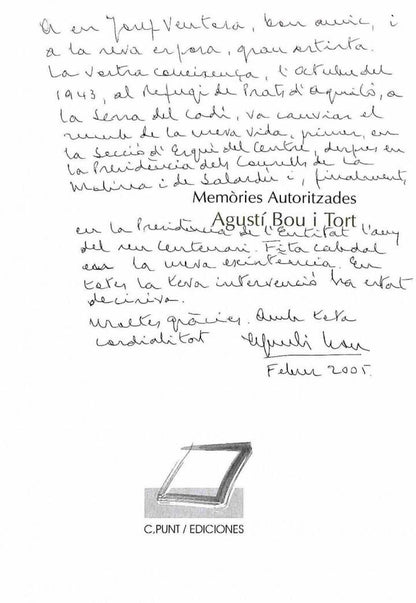 A en Josep Ventosa, bon amic, i
a la seva esposa, gran artista.
La vostra coneixença, l'Octubre del
1943, al Refugi de Prats d'Aguiló, a
la Serra del Cadí, va canviar el
rumb de la meva vida, primer, en
la Secció d'Esquí del Centre, després en
la Presidència dels Consells de La
Molina i de Salardú i, finalment,
Memòries Autoritzades
Agustí Bou i Tort
en la Presidència de l'Entitat l'any
del seu Centenari. Fita cabdal
en la meva existència. En
totes la teva intervenció ha estat
decisiva.
Moltes gràcies. Amb tota
cordialitat Agustí Bou
Febrer 2005.
C,PUNT / EDICIONES